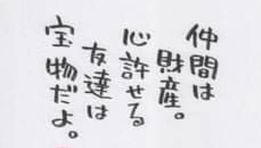 仲間は
財産。
心許せる
友達は
宝物だよ。